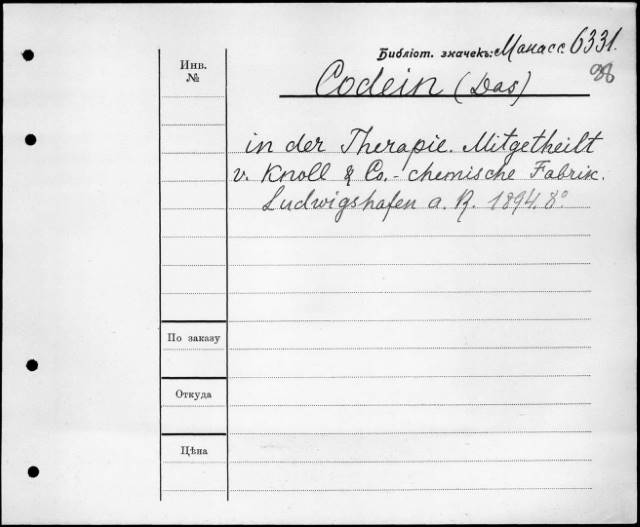 Библіот. значекъ: Манасс. 6331.
98
Инв.
№
Codein (Das)
in der Therapie. Mitgetheilt
v. Knoll & Co. - chemische Fabrik.
Ludwigshafen a. R. 1894. 8°.
По заказу
Откуда
Цѣна